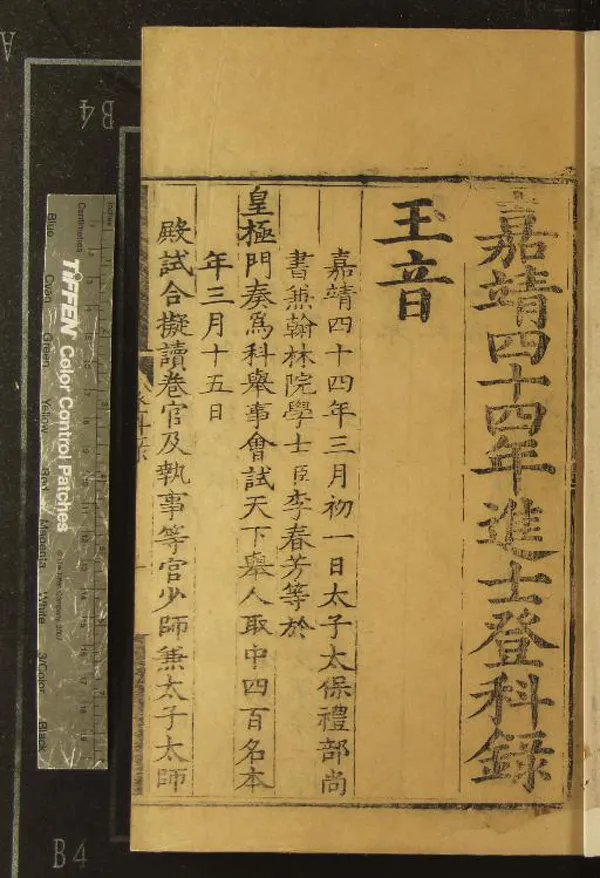 嘉靖四十四年進士登科錄
玉音
嘉靖四十四年三月初一日太子太保禮部尚
書兼翰林院學士臣李春芳等於
皇極門奏為科舉事會試天下舉人取中四百名本
年三月十五日
殿試合擬讀卷官及執事等官少師兼太子太師
登科錄
Inches
Centimetres
TIFFEN Color Control Patches
Blue
Cyan
Green
Yellow
Red
Magenta
White
3/Color
Black
A
B4
B4